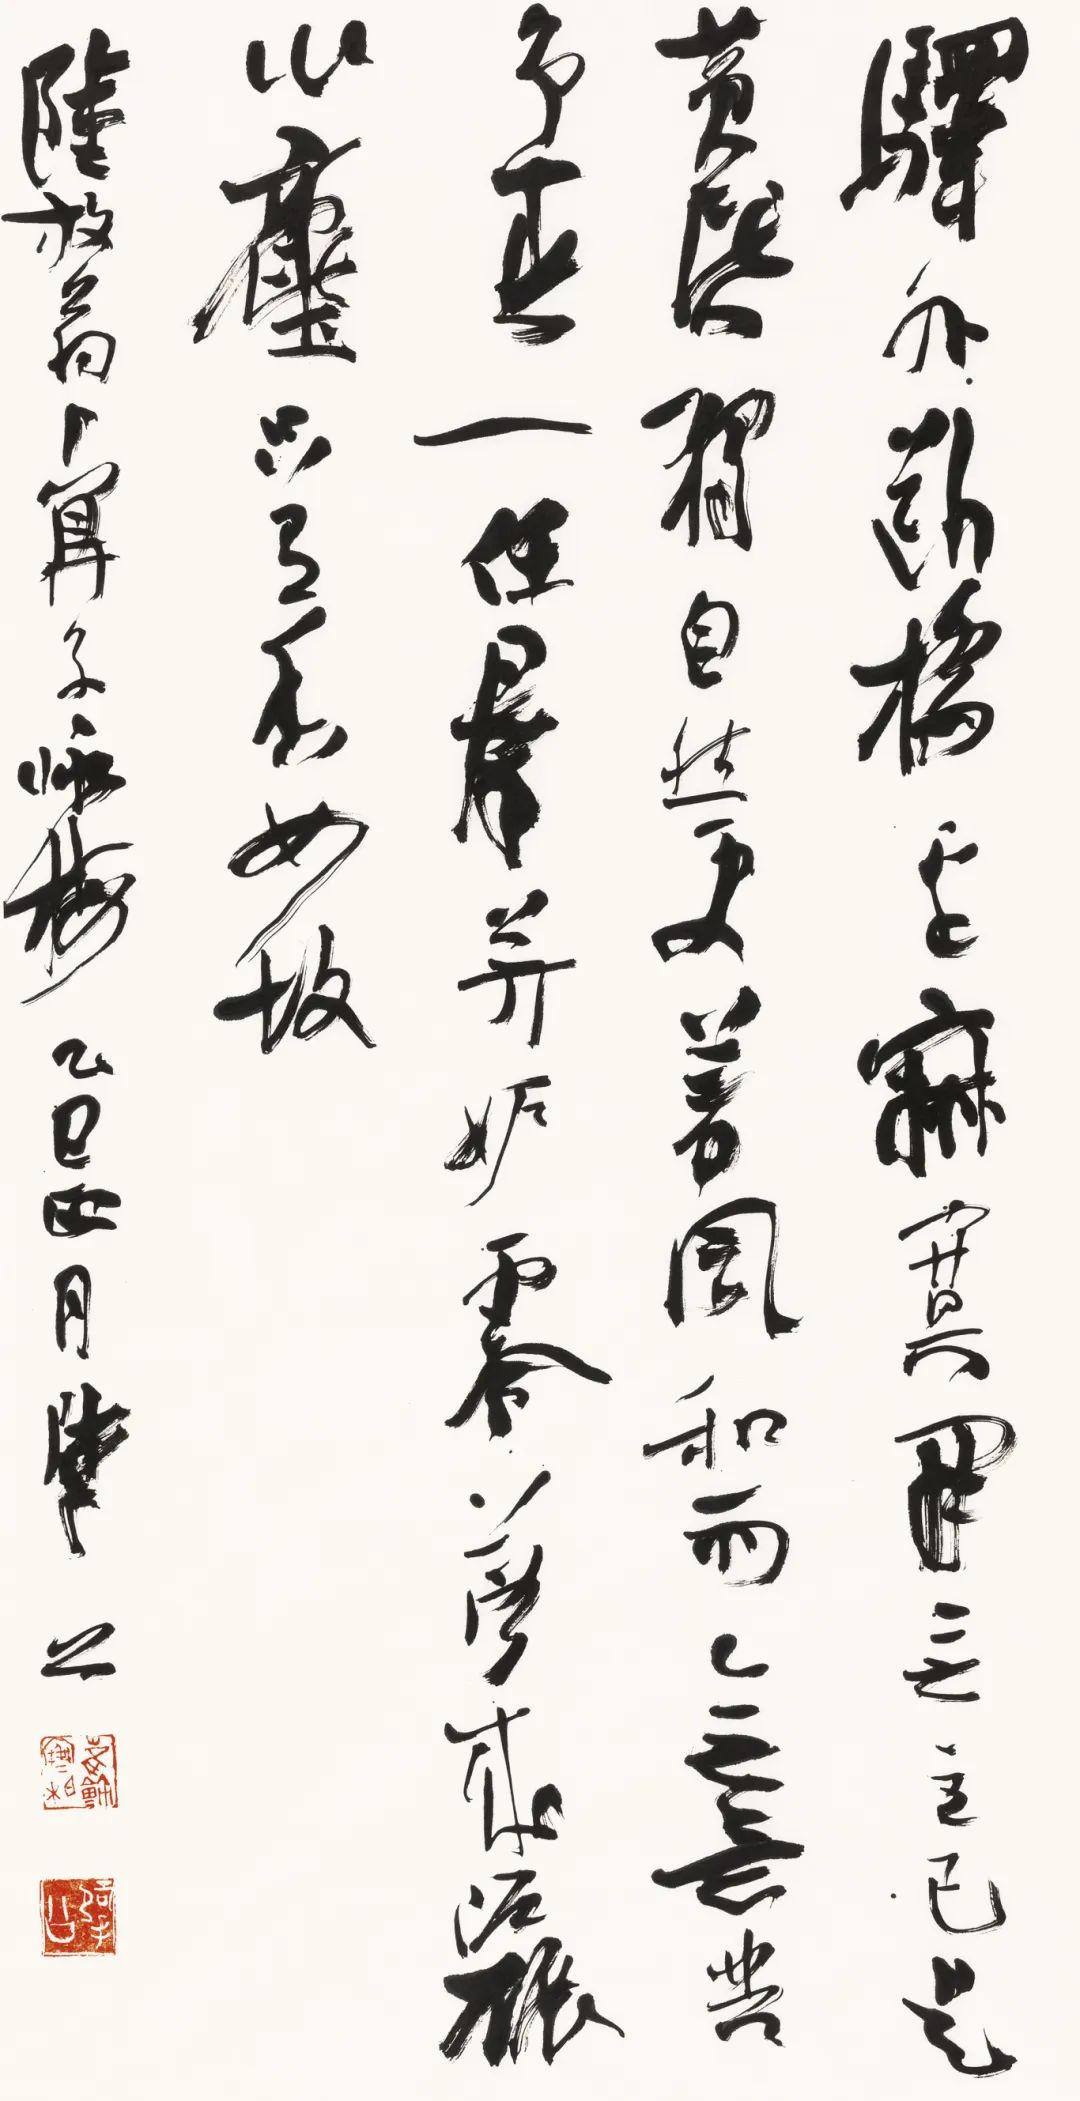 驛外斷橋邊寂寞開無主已是
黃昏獨自愁更著風和雨無意苦
爭春一任群芳妒零落成泥碾
作塵只有香如故
陸放翁卜算子咏梅 乙巳四月